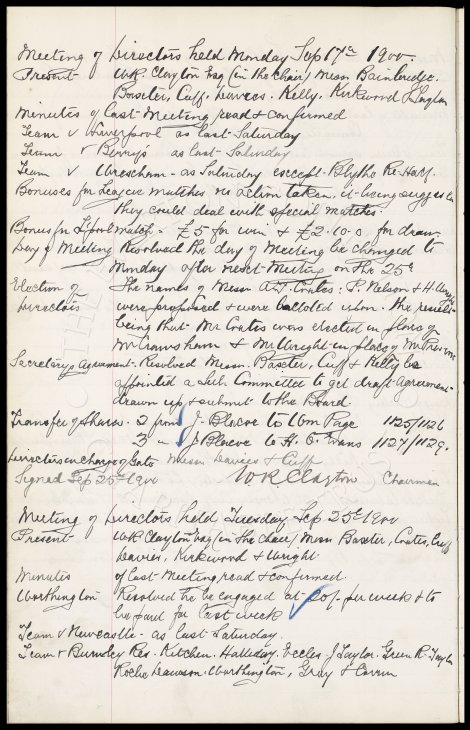 Meeting of Directors held Monday Sep 17th 1900.
Present W.R. Clayton Esq (in the Chair) Messrs Bainbridge.
Baxter, Cuff. Davies. Kelly. Kirkwood &
Minutes of last Meeting read & confirmed
Team v Liverpool as last Saturday
Team v Berrys as last Saturday
Team v Wrexham - as Saturday except Blythe Re. Half.
Bonuses for League matches no action taken, it being suggested
they could deal with special matches.
Bonus for L'pool match - £5 for win & £2.10.0 for draw.
Day of Meeting Resolved the day of Meeting be changed to
Monday after next Meeting on the 25th
Election of The names of Messrs A.T. Coates: P. Nelson & H. Wright
Directors were proposed & were balloted upon. the result
being that Mr Coates was elected in place of
Mr Crawshaw & Mr Wright in place of Mr
Secretarys Agreement. Resolved Messrs. Baxter, Cuff & Kelly be
appointed a Sub Committee to get draft Agreement
drawn up & submit to the Board.
Transfer of Shares. 2 from J. Blezoe to Wm Page 1125/1126
2 " J. Blezoe to H. O. Evans 1127/1128.
Directors in Charge of Gate Messrs Davies & Cuff
Signed Sep 25th 1900 W R Clayton Chairman
Meeting of Directors held Tuesday Sep 25th 1900
Present W.R. Clayton Esq (in the Chair) Messrs Baxter, Coates, Cuff
Davies, Kirkwood & Wright.
Minutes of last Meeting read & confirmed.
Worthington Resolved he be engaged at 20/- per week & to
be paid for last week
Team v Newcastle - as last Saturday.
Team v Burnley Res. Kitchen. Halliday. Eccles J Taylor. Green R. Taylor
Roche Dawson. Worthington, Gray & Corrin